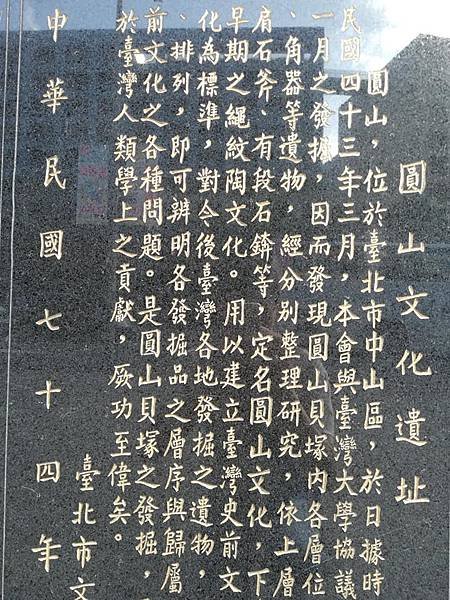 圓山文化遺址
圓山，位於臺北市中山區，於日據時
民國四十三年三月，本會與臺灣大學協議
一月之發掘，因而發現圓山貝塚內各層位
、角器等遺物，經分別整理研究，依上層
肩石斧、有段石錛等，定名圓山文化，下
早期之繩紋陶文化。用以建立臺灣史前文
化為標準，對今後臺灣各地發掘之遺物，
、排列，即可辨明各發掘品之層序與歸屬
前文化之各種問題。是圓山貝塚之發掘，
於臺灣人類學上之貢獻，厥功至偉矣。
臺北市文
中華民國七十四年